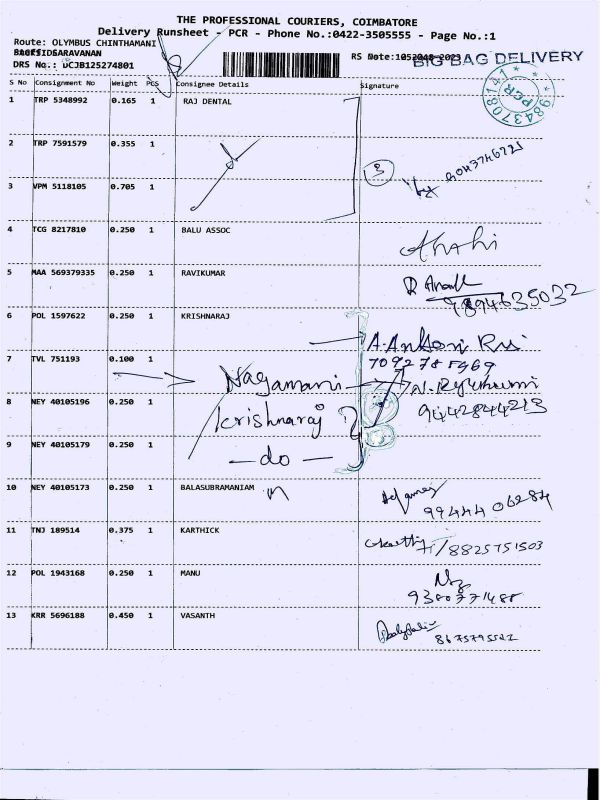 THE PROFESSIONAL COURIERS, COIMBATORE
Delivery Runsheet - PCR - Phone No.:0422-3505555 - Page No.:1
Route: OLYMBUS CHINTHAMANI
DRS No.: DCJB125274801
RS Date:
BIG BAG DELIVERY
S No Consignment No Weight PCS Consignee Details Signature
PCR
9843708141
1 TRP 5348992 0.165 1 RAJ DENTAL
2 TRP 7591579 0.355 1
3 VPM 5118105 0.705 1
3
4 TCG 8217810 0.250 1 BALU ASSOC
5 MAA 569379335 0.250 1 RAVIKUMAR
7894635032
6 POL 1597622 0.250 1 KRISHNARAJ
A. Antoni
7092785969
7 TVL 751193 0.100 1
Nagamani
8 NEY 40105196 0.250 1
Krishnaraj
9442844213
9 NEY 40105179 0.250 1
- do -
10 NEY 40105173 0.250 1 BALASUBRAMANIAM
9944406284
11 TNJ 189514 0.375 1 KARTHICK
8825751503
12 POL 1943168 0.250 1 MANU
9380771488
13 KRR 5696188 0.450 1 VASANTH